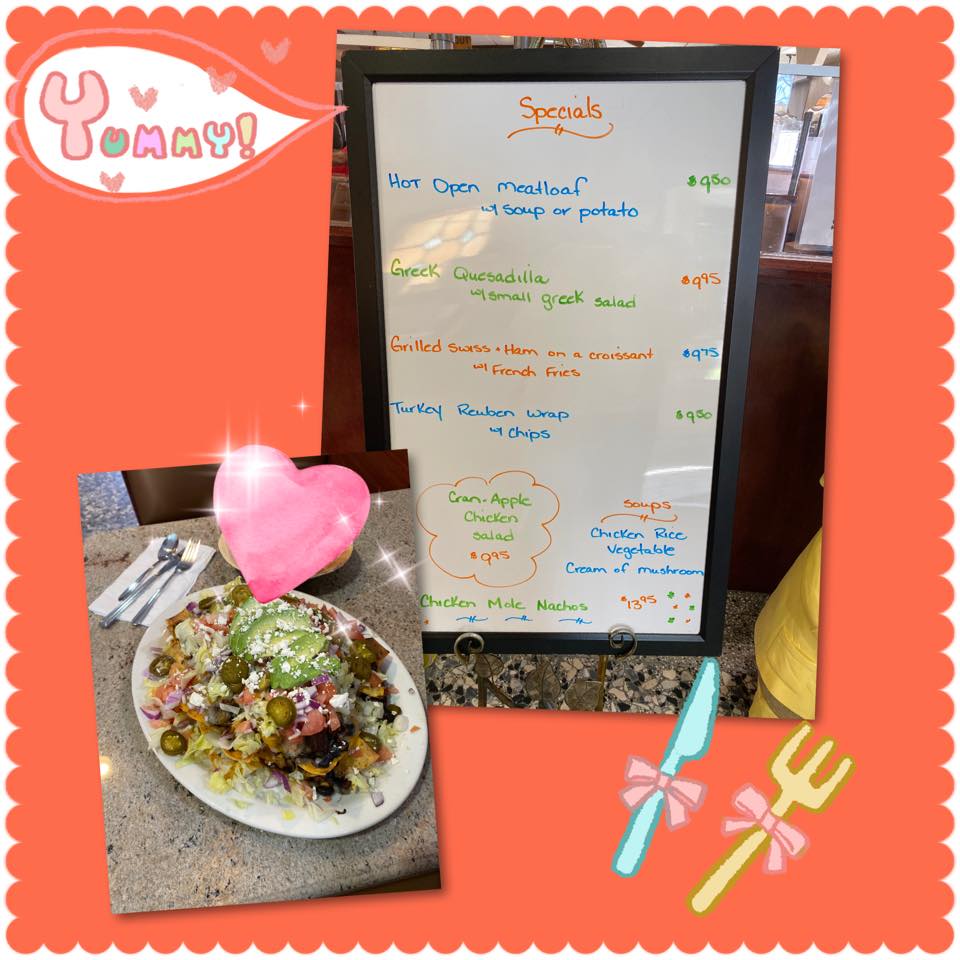 Yummy!
Specials
Hot Open Meatloaf $9.50
w/ soup or potato
Greek Quesadilla $9.95
w/ small greek salad
Grilled Swiss + Ham on a croissant $9.75
w/ French Fries
Turkey Reuben Wrap $9.50
w/ Chips
Cran-Apple
Chicken
salad
$9.95
soups
Chicken Rice
Vegetable
Cream of mushroom
Chicken Mole Nachos $13.95